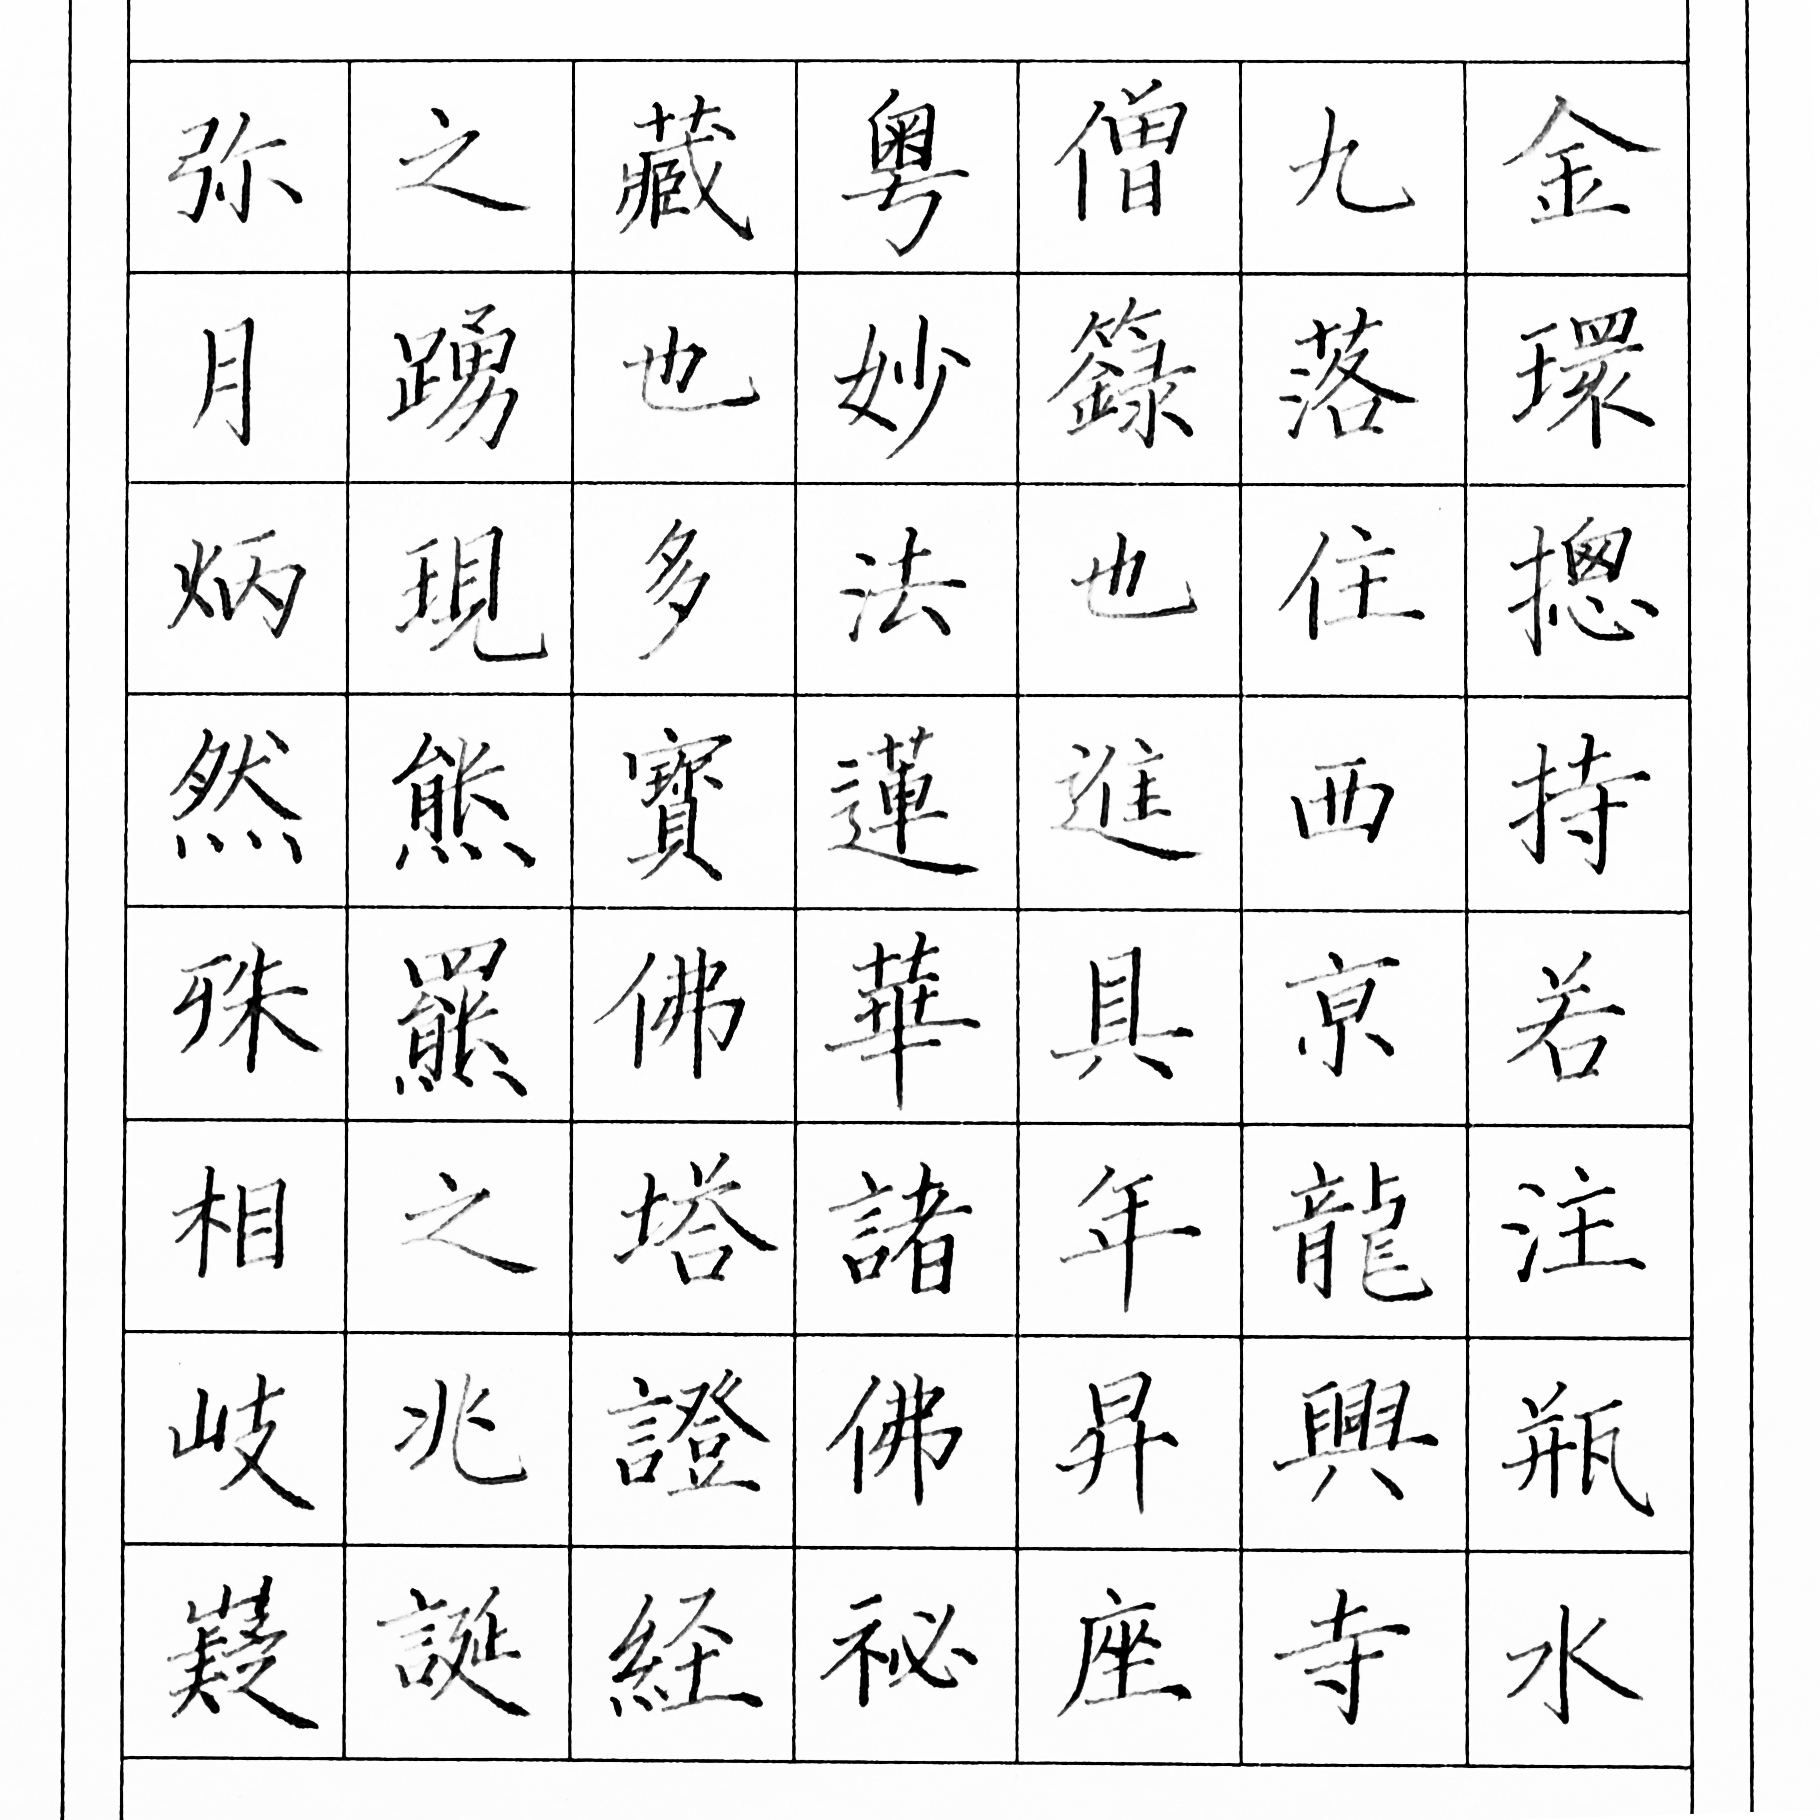 金環摠持若注瓶水
九落住西亰龍興寺
僧籙也進具年昇座
粤妙法蓮華諸佛祕
藏也多寶佛塔證経
之踴現熊羆之兆誕
弥月炳然殊相岐嶷